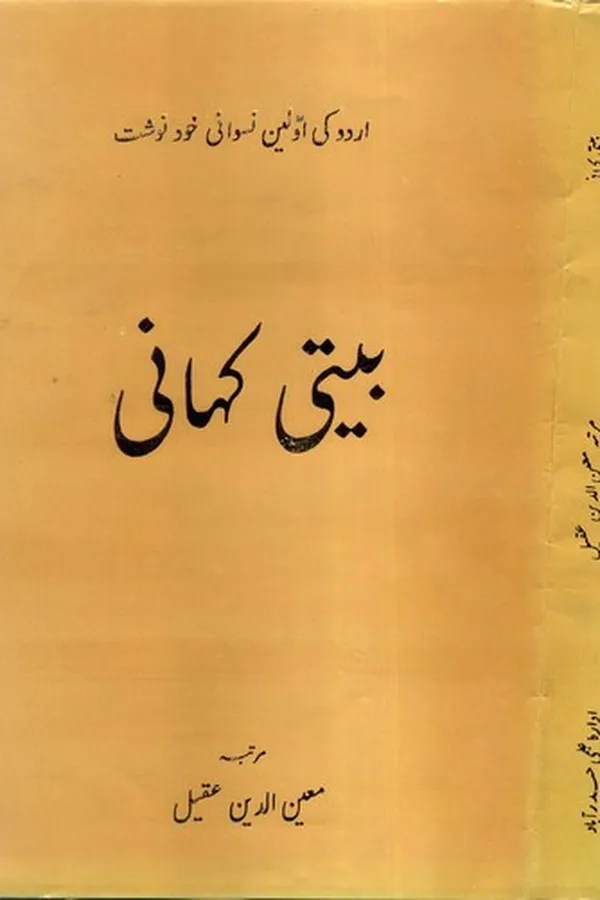 اردو کی اوّلین نسوانی خود نوشت
بیتی کہانی
مرتبہ
معین الدین عقیل
بیتی کہانی
مرتبہ معین الدین عقیل
حیدرآباد